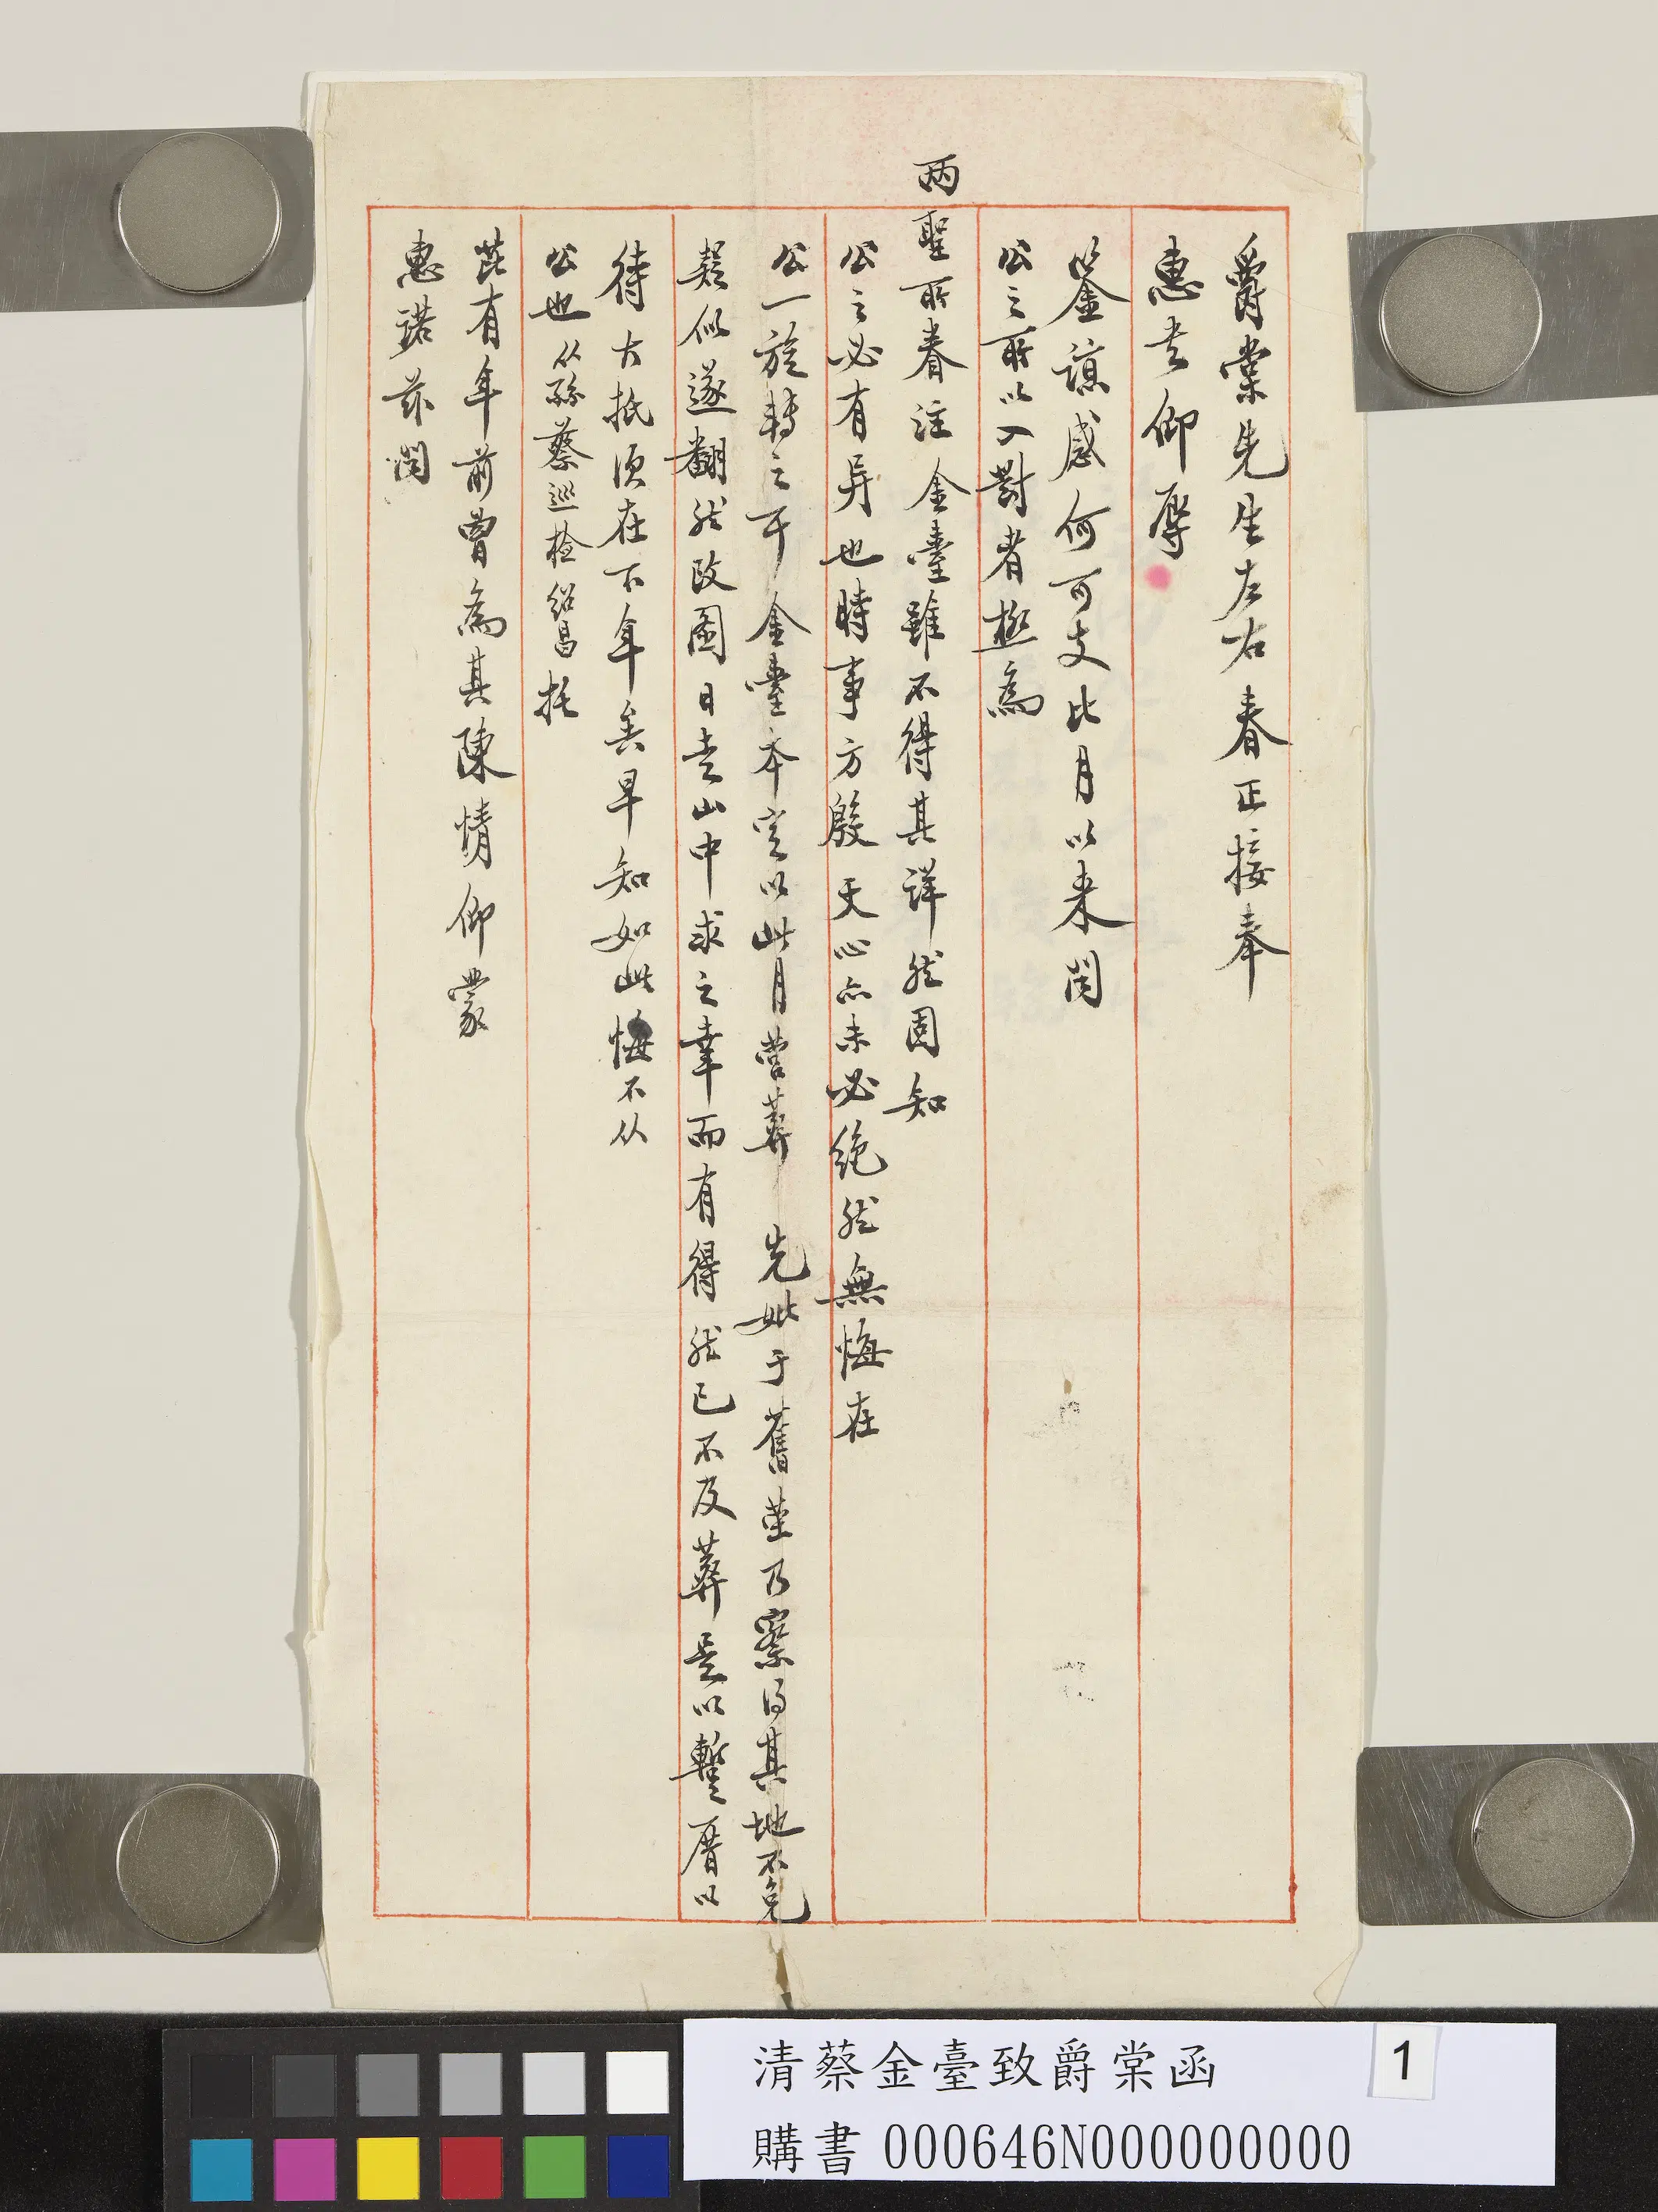 爵棠先生左右春正接奉
惠書仰辱
鑒諒感何可支比月以來聞
公之所以入對者極為
兩聖所眷注金臺雖不得其詳然固知
公之必有异也時事方殷天心亦未必絕然無悔在
公一旋轉之耳金臺本定以此月營葬先妣于舊塋乃察得其地不免
疑似遂翻然改圖日走山中求之幸而有得然已不及葬是以暫厝以
待大抵須在下年矣早知如此悔不从
公也从孫蔡巡檢紹昌托
茈有年前曾為其陳情仰蒙
惠諾茲聞
清蔡金臺致爵棠函
1
購書 000646N000000000